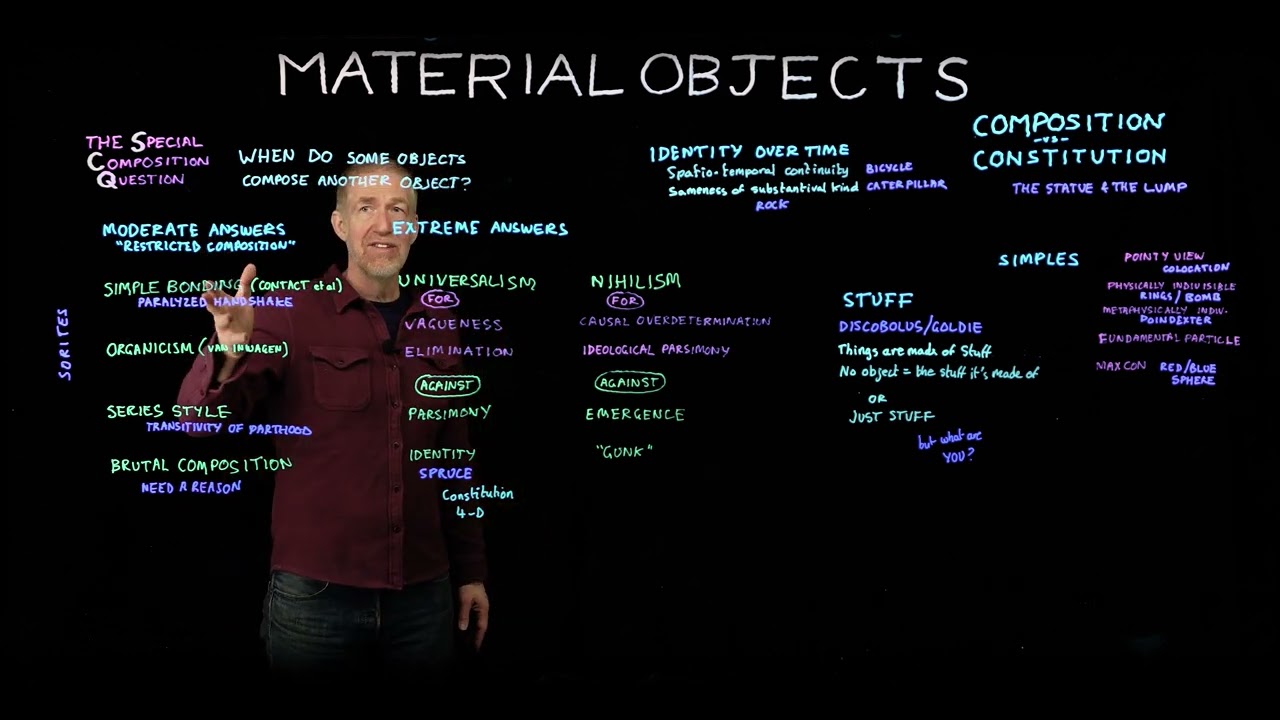 MATERIAL OBJECTS
THE SPECIAL
COMPOSITION
QUESTION
WHEN DO SOME OBJECTS
COMPOSE ANOTHER OBJECT?
MODERATE ANSWERS
"RESTRICTED COMPOSITION"
EXTREME ANSWERS
SORITES
SIMPLE BONDING (CONTACT et al)
PARALYZED HANDSHAKE
ORGANICISM (VAN INWAGEN)
SERIES STYLE
TRANSITIVITY OF PARTHOOD
BRUTAL COMPOSITION
NEED A REASON
UNIVERSALISM
FOR
VAGUENESS
ELIMINATION
AGAINST
PARSIMONY
IDENTITY
SPRUCE
Constitution
4-D
NIHILISM
FOR
CAUSAL OVERDETERMINATION
IDEOLOGICAL PARSIMONY
AGAINST
EMERGENCE
"GUNK"
IDENTITY OVER TIME
Spatio-temporal continuity BICYCLE
Sameness of substantival kind CATERPILLAR
ROCK
COMPOSITION
-VS-
CONSTITUTION
THE STATUE & THE LUMP
STUFF
DISCOBOLUS/GOLDIE
Things are made of Stuff
No object = the stuff it's made of
OR
JUST STUFF
but what are
YOU?
SIMPLES
POINTY VIEW
COLOCATION
PHYSICALLY INDIVISIBLE
RINGS/BOMB
METAPHYSICALLY INDIV.
POINDEXTER
FUNDAMENTAL PARTICLE
MAXCON RED/BLUE
SPHERE